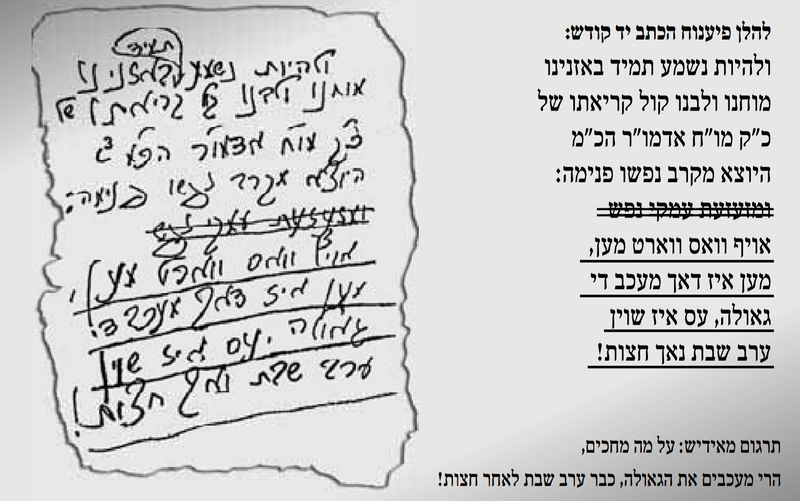 להלן פיענוח הכתב יד קודש:
ולהיות נשמע תמיד באזנינו
מוחנו ולבנו קול קריאתו של
כ״ק מו״ח אדמו״ר הכ״מ
היוצא מקרב נפשו פנימה:
ומזעזעת עמקי נפש
אויף וואס ווארט מען,
מען איז דאך מעכב די
גאולה, עס איז שוין
ערב שבת נאך חצות!
תרגום מאידיש: על מה מחכים,
הרי מעכבים את הגאולה, כבר ערב שבת לאחר חצות!
תמיד
ולהיות נשמע באזנינו
מוחנו ולבנו קול קריאתו של
כ"ק מו"ח אדמו"ר הכ"מ
היוצא מקרב נפשו פנימה:
ומזעזעת עמקי נפש
אויף וואס ווארט מען,
מען איז דאך מעכב די
גאולה, עס איז שוין
ערב שבת נאך חצות!